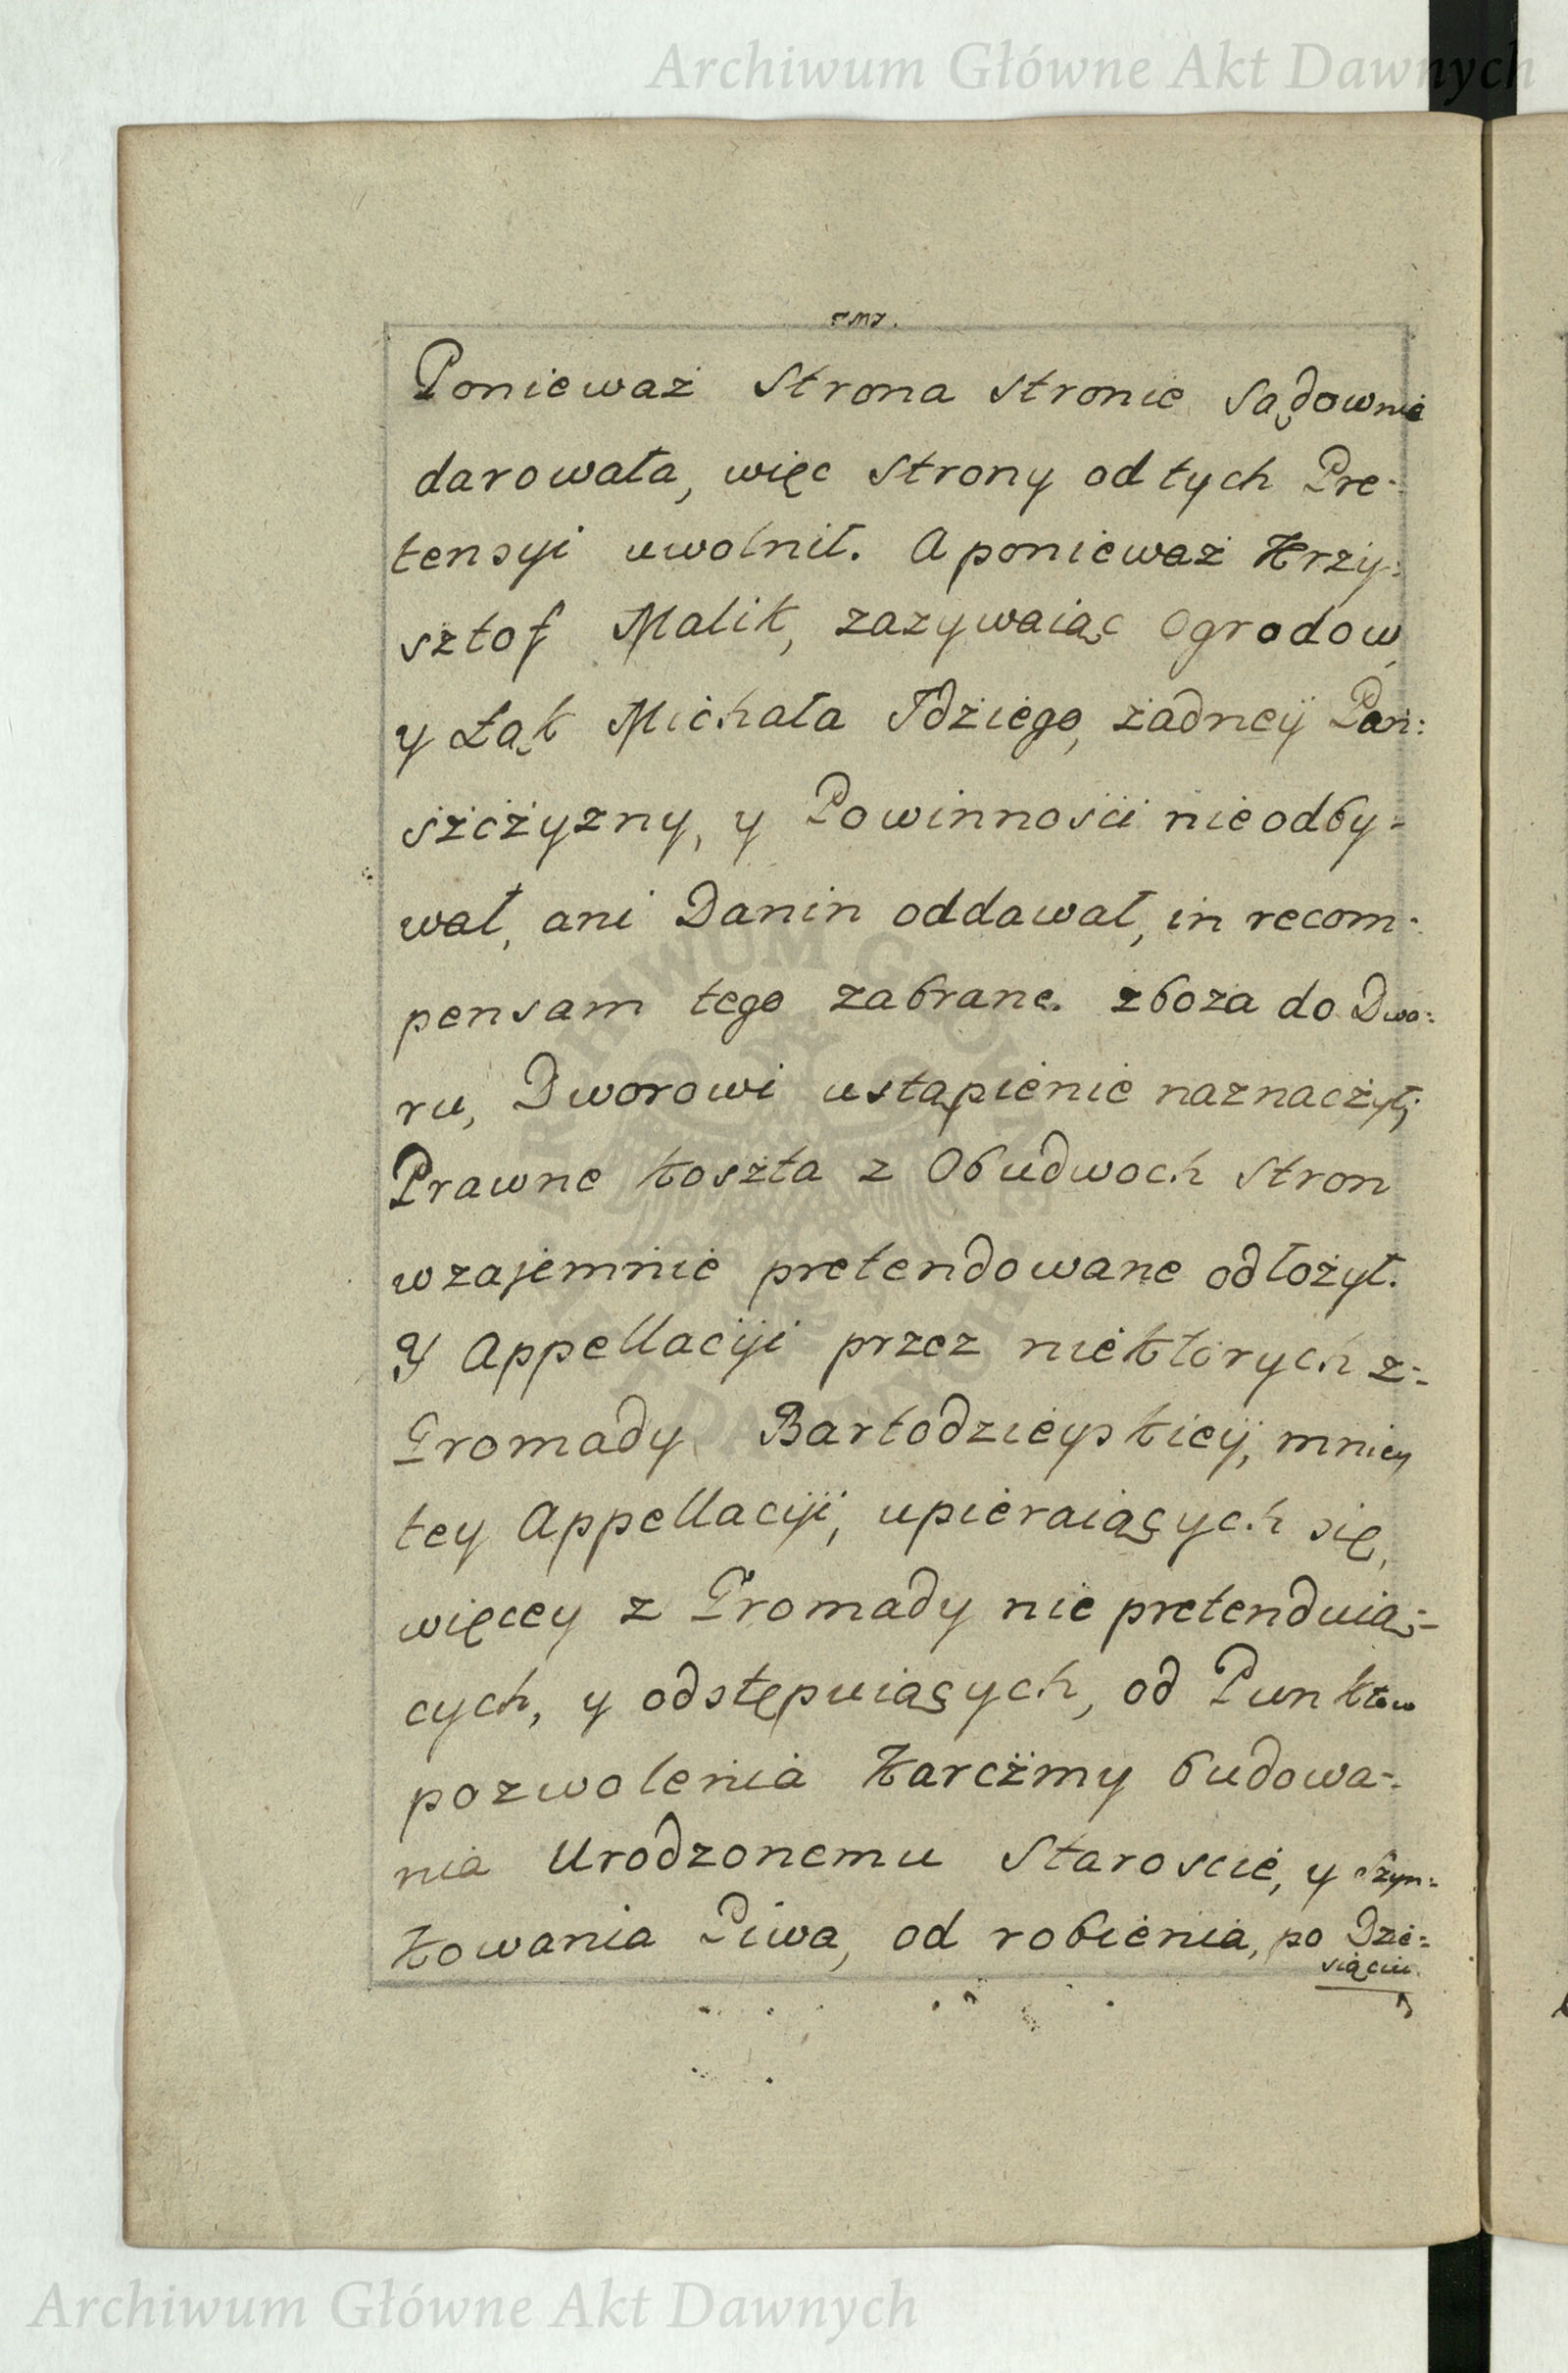 Archiwum Główne Akt Dawnych
Ponieważ Strona stronie Sądownie
darowała, więc strony od tych Pre-
tensyi uwolnił. A ponieważ Krzy-
sztof Malik, zazywaiąc Ogrodow
y Łąk Michała Idziego, żadney Pań:
szczyzny, y Powinności nie odby-
wał, ani Danin oddawał, in recom-
pensam tego zabrane zboza do Dwo:
ru, Dworowi ustąpienie naznaczył;
Prawne koszta z Obudwoch Stron
wzajemnie pretendowane odłożył.
Y Appellacyi przez niektórych z:
Gromady Bartodzieyskiey, mniey
tey Appellacyi, upieraiących się,
więcey z Gromady nie pretenduią-
cych, y odstępuiących, od Punktow
pozwolenia Karczmy budowa-
nia Urodzonemu Staroscie, y Szyn:
kowania Piwa, od robienia, po Dzie:
siąciu
ARCHIWUM GŁÓWNE AKT DAWNYCH
Archiwum Główne Akt Dawnych